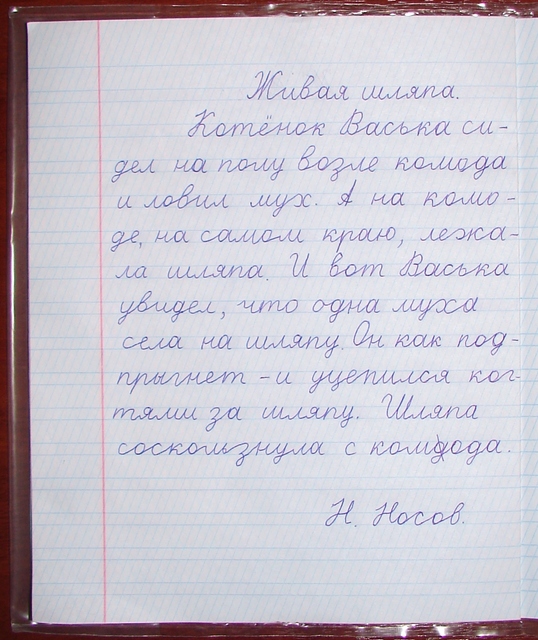 Живая шляпа.
Котёнок Васька си-
дел на полу возле комода
и ловил мух. А на комо-
де, на самом краю, лежа-
ла шляпа. И вот Васька
увидел, что одна муха
села на шляпу. Он как под-
прыгнет - и уцепился ког-
тями за шляпу. Шляпа
соскользнула с комода.
Н. Носов.